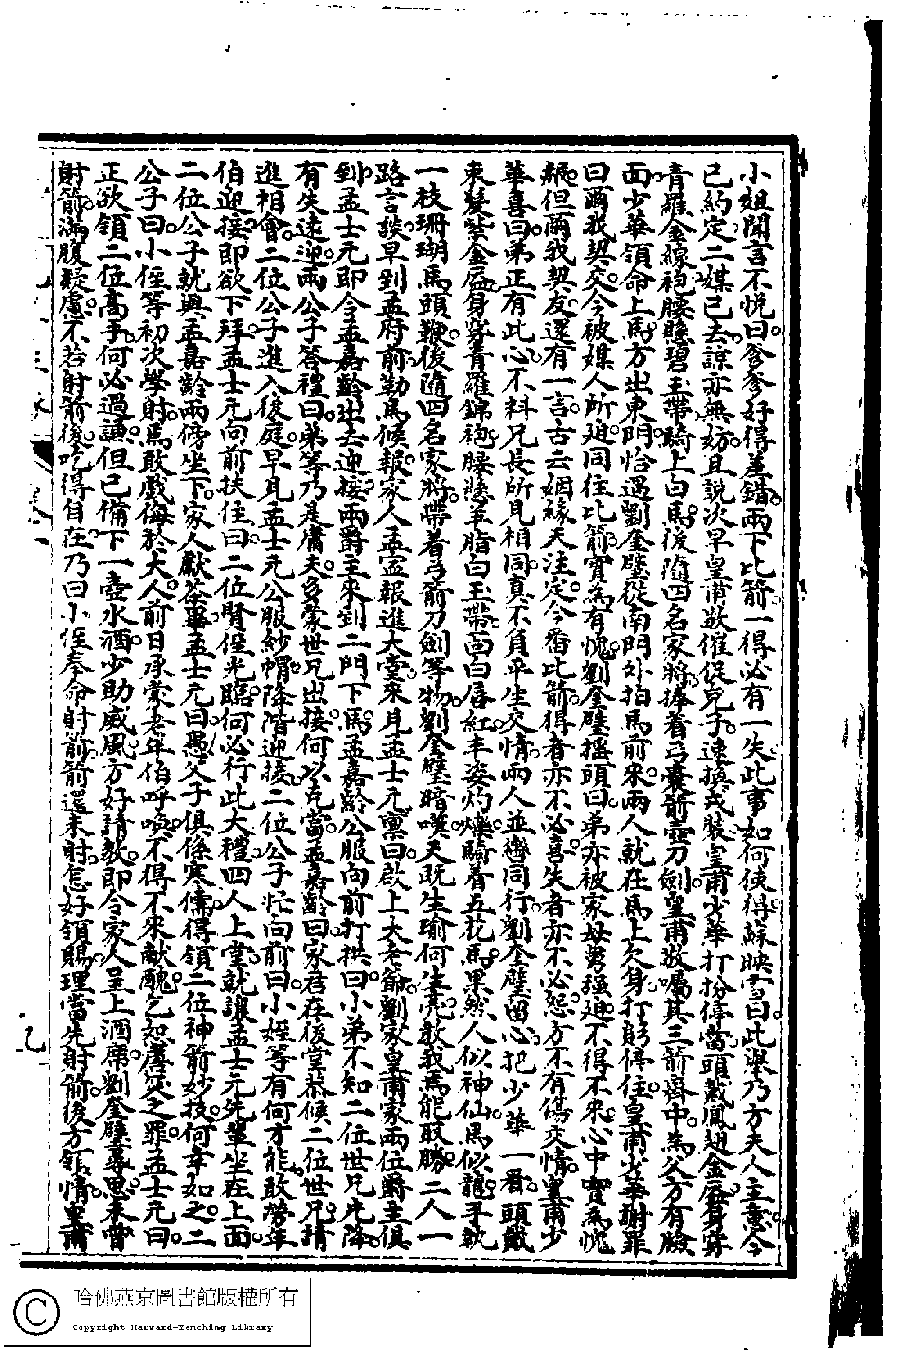 小姐聞言不悅曰爹爹好得差錯兩下比箭一得必有一失此事如何使得蘇映雪曰此舉乃方夫人主意今
已約定二媒已去諒亦無妨且說次早皇甫敬催促兒子速換戎裝皇甫少華打扮停當頭戴鳳翅金盔身穿
青羅金線袍腰䀡碧玉帶騎上白馬後隨四名家將捧着弓囊箭壺刀劍皇甫敬囑其三箭齊中為父方有臉
面少華領命上馬方出東門恰遇劉奎璧從南門外拍馬前來兩人就在馬上欠身打躬停住皇甫少華謝罪
曰爾我契交今被媒人所廹同往比箭實為有愧劉奎璧搖頭曰弟亦被家母舅強廹不得不來心中實為愧
赧但爾我契友還有一言古云姻緣天注定今番比箭得者亦不必喜失者亦不必怒方不有傷交情皇甫少
華喜曰弟正有此心不料兄長所見相同真不負平生交情兩人並轡同行劉奎璧留心把少華一看頭戴
束髮紫金盔身穿青羅錦袍腰懸羊脂白玉帶面白唇紅丰姿灼爍騎着五花馬果然人似神仙馬似龍手執
一枝珊瑚馬頭鞭後隨四名家將帶着弓箭刀劍等物劉奎璧暗嘆天既生瑜何生亮教我焉能取勝二人一
路言談早到孟府前勒馬候報家人孟宓報進大堂來見孟士元稟曰啟上大老爺劉家皇甫家兩位爵主俱
到孟士元即令孟嘉齡出去迎接兩爵主來到二門下馬孟嘉齡公服向前打拱曰小弟不知二位世兄光降
有失遠迎兩公子答禮曰弟等乃是庸夫多蒙世兄出接何以克當孟嘉齡曰家君在後堂恭候二位世兄請
進相會二位公子進入後庭早見孟士元公服紗帽降階迎接二位公子忙向前曰小姪等有何才能敢勞年
伯迎接即欲下拜孟士元向前扶住曰二位賢侄光臨何必行此大禮四人上堂就讓孟士元先輩坐在上面
二位公子就與孟嘉齡兩傍坐下家人獻茶畢孟士元曰愚父子俱係寒儒得領二位神箭妙技何幸如之二
公子曰小侄等初次學射焉敢戲侮於大人前日承蒙老年伯呼喚不得不來献醜乞恕虛妄之罪孟士元曰
正欲領二位高手何必過謙但已備下一壺水酒少助威風方好請教即令家人呈上酒席劉奎璧尋思未曾
射箭滿腹疑慮不若射箭後吃得自在乃曰小侄奉命射箭箭還未射怎好領賜理當先射箭後方領情皇甫
哈佛燕京圖書館版權所有
Copyright Harvard-Yenching Library